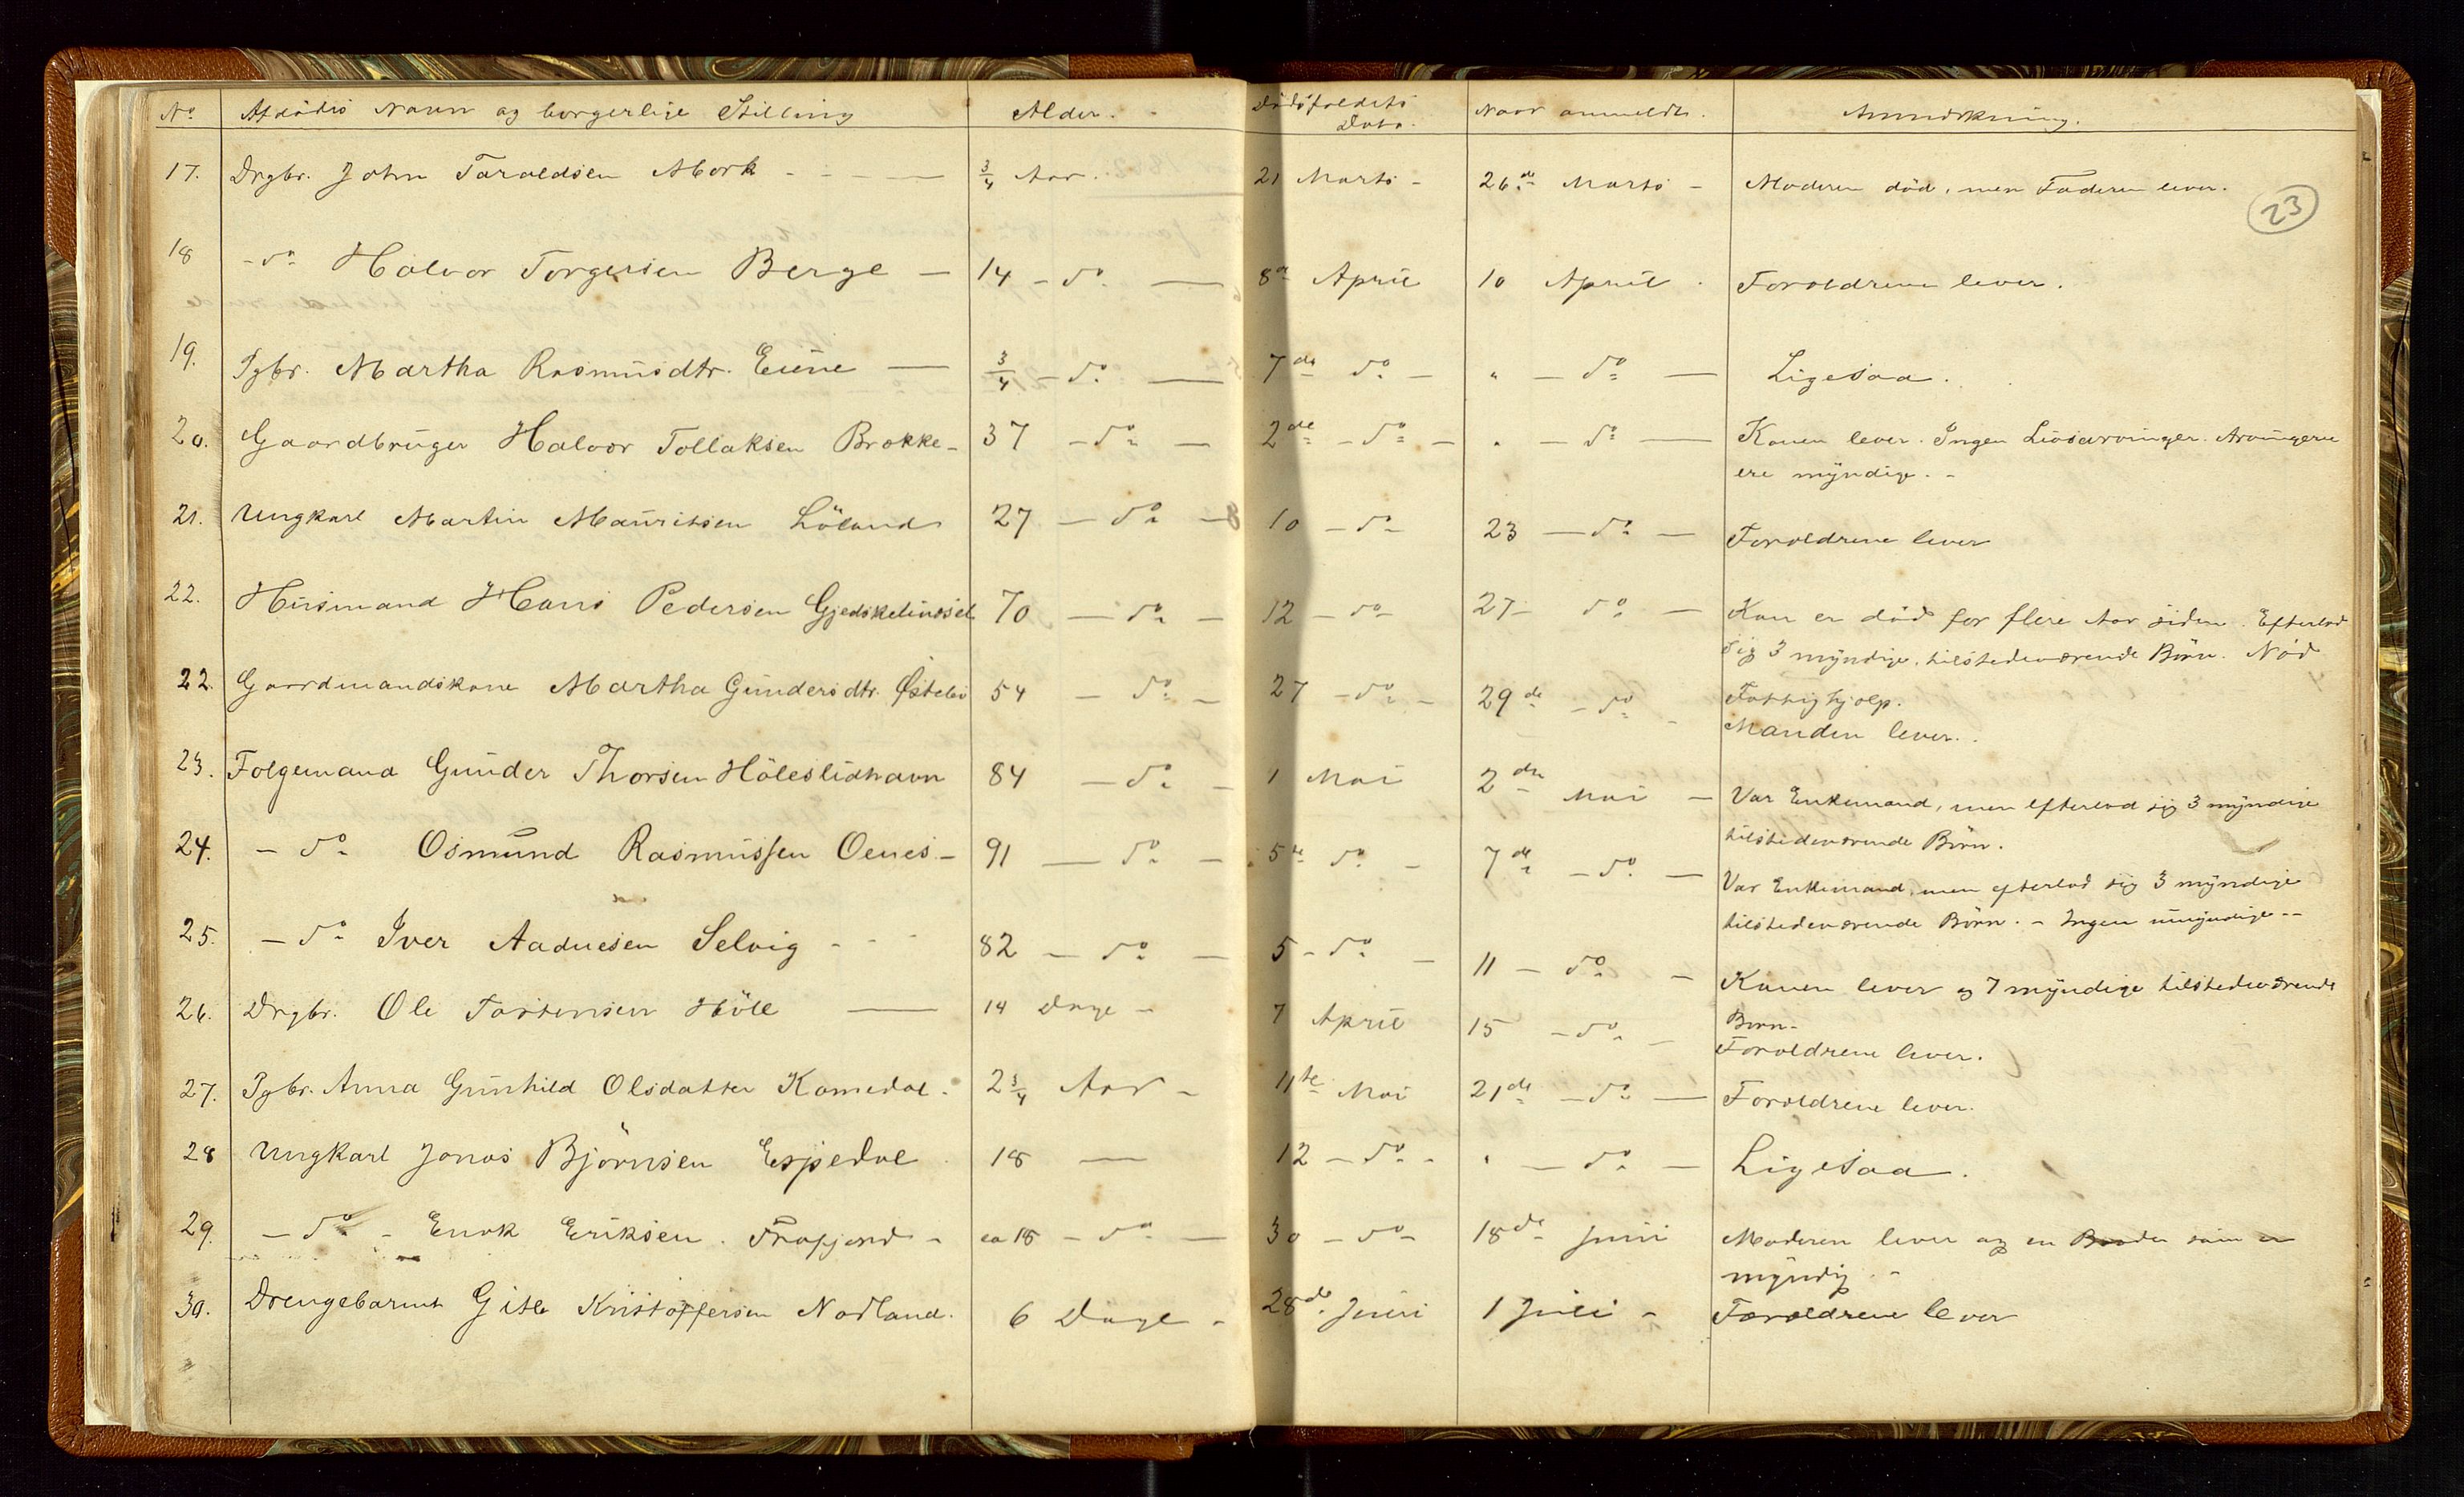 No Afdødes Navn og borgerlige Stilling Alder. Dødsfaldets Dato. Naar anmeldt. Anmærkning.
23
17. Drgbr. John Taraldsen Mork - - - — 3/4 Aar. 21 Marts - 26de Marts - Moderen död, men Faderen lever.
18 - do Halvor Torgersen Berge — 14 - do — 8de April 10 April . Forældrene lever.
19. Pgbr. Martha Rasmusdtr. Eiene — 3/4 - do — 7de do - " - do — Ligesaa.
20. Gaardbruger Halvor Tollaksen Brække - 37 - do — 2de - do - " - do — Konen lever. Ingen Livsarvinger. Arvingerne
ere myndige. -
21. Ungkarl Martin Mauritsen Löland 27 — do - 10 - do 23 — do - Forældrene lever
22. Huusmand Hans Pedersen 70 — do - 12 - do 27 - do - Kon er död for flere Aar siden. Efterlod
sig 3 myndige, tilstedeværende Börn. Nöd
Fattighjælp.
22. Gaardmandskone Martha Gundersdtr. Østebö 54 - do - 27 - do - 29de - do - Manden lever.
23. Folgemand Gunder Thorsen Höleslidhavn 84 - do - 1 Mai 2den Mai - Var Enkemand, men efterlod sig 3 myndige
tilstedeværende Börn.
24. - do Osmund Rasmussen Oenes - 91 — do - 5te do - 7de - do - Var Enkemand, men efterlod sig 3 myndige
tilstedeværende Börn. - Ingen umyndige --
25. - do Iver Aadnesen Selvig - - - 82 - do - 5 - do - 11 - do - Konen lever og 7 myndige tilstedeværende
Börn -
26. Drgbr. Ole Tostensen Höle — 14 Dage - 7 April 15 - do - Forældrene lever.
27. Pgbr. Anna Gunhild Olsdatter Komedal - 2 3/4 Aar - 11te Mai 21de - do — Forældrene lever.
28 Ungkarl Jonas Björnsen Espedal 18 — 12 - do - " - do - Ligesaa.
29. - do - Enok Eriksen Frafjord - ca 18 - do — 30 - do - 18de Juni Moderen lever og en Broder som er
myndig. -
30. Drengebarnet Gitle Kristoffersen Nordland. 6 Dage - 28de Juni 1 Juli - Forældrene lever